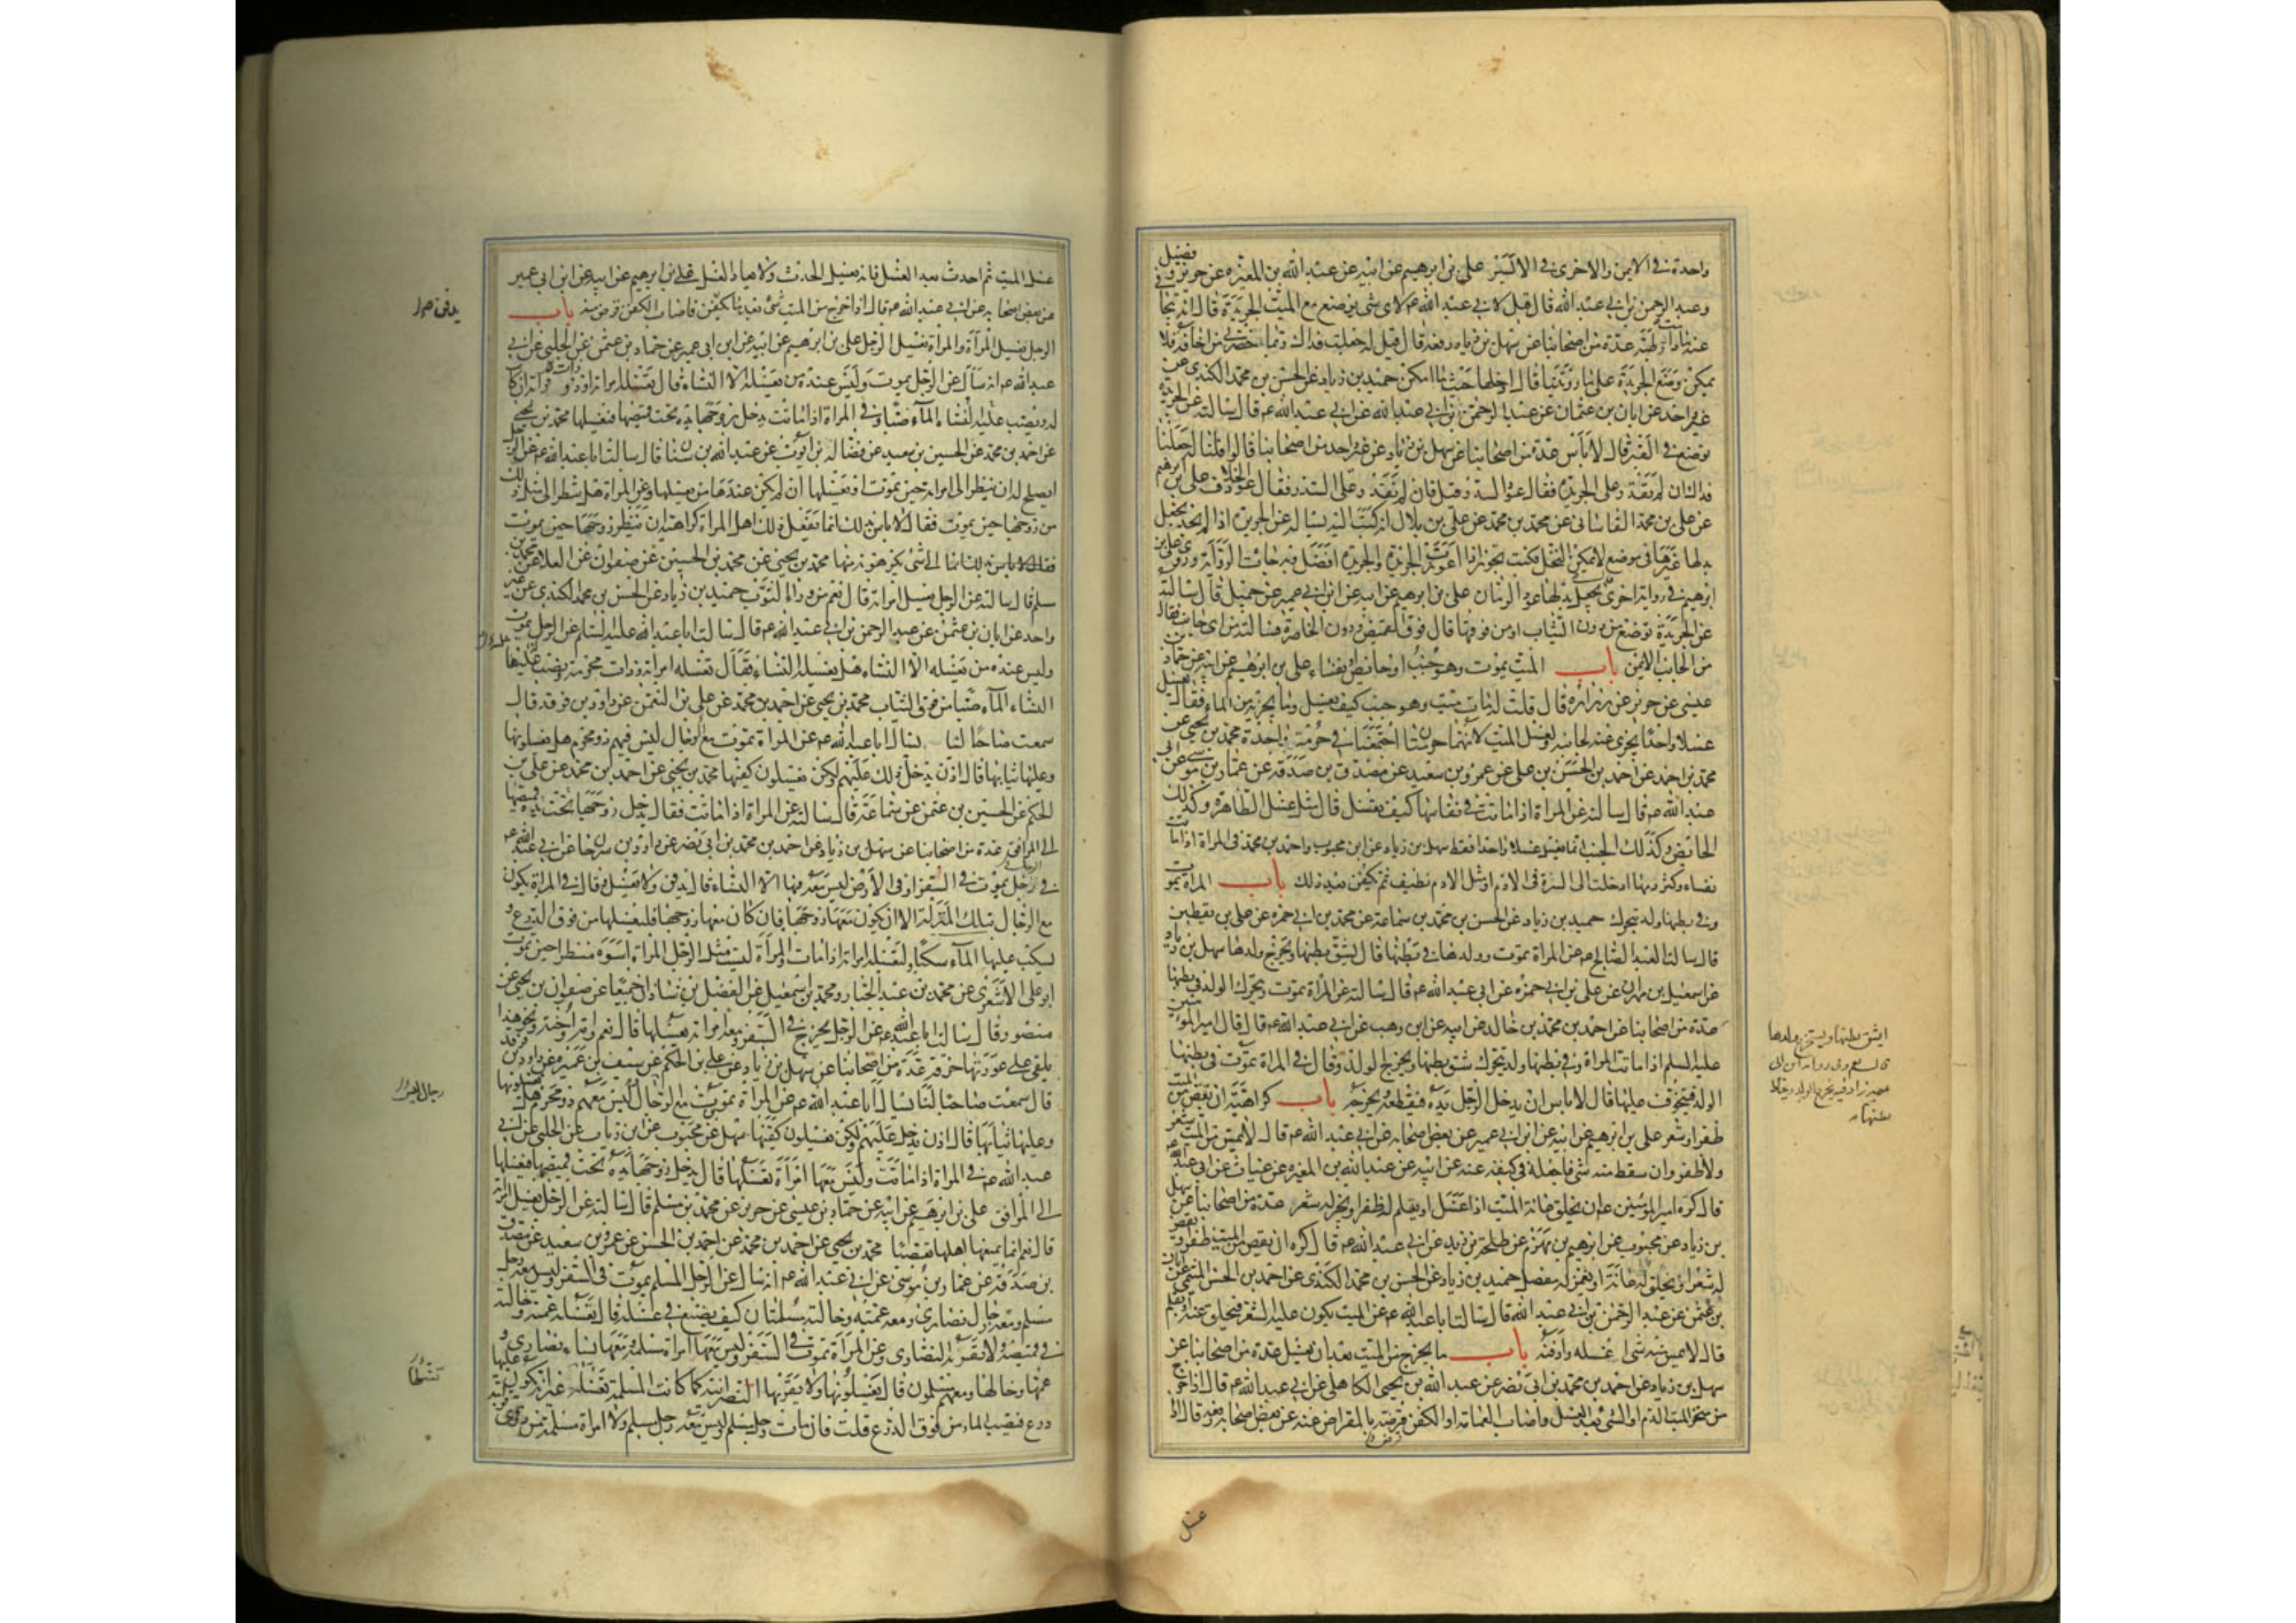 واحدة في الايمن والاخرى في الايسر علي بن ابرهيم عن ابيه عن عبد الله بن المغيره عن حريز وفضيل
وعبد الرحمن بن ابي عبد الله قال قيل لابي عبد الله عم لاي شي يوضع مع الميت الجريدة قال انه يتجافى
عنه ما دامت رطبة عدة من اصحابنا عن سهل بن زياد رفعه قال قيل له جعلت فداك ربما حضرني من اخافه فلا
يمكن وضع الجريدة على ما رويتنا قال ادخلها حيث ما امكن حميد بن زياد عن الحسن بن محمد الكندي عن
غير واحد عن ابان بن عثمان عن عبد الرحمن بن ابي عبد الله عن ابي عبد الله عم قال سالته عن الجريدة
توضع في القبر قال لا باس عدة من اصحابنا عن سهل بن زياد عن غير واحد من اصحابنا قالوا قلنا له جعلنا
فداك ان لم نقدر على الجريدة فقال عود السدر قيل فان لم نقدر على السدر فقال عود الخلاف علي بن ابرهيم
عن علي بن محمد القاساني عن محمد بن محمد عن علي بن بلال انه كتب اليه يساله عن الجريدة اذا لم نجد نجعل
بدلها غيرها في موضع لا يمكن النخل فكتب يجوز اذا اعوزت الجريدة والجريدة افضل وبه جاءت الرواية وروى علي بن
ابرهيم في رواية اخرى قال يجعل بدلها عود الرمان علي بن ابرهيم عن ابيه عن ابن ابي عمير عن جميل قال سالته
عن الجريدة توضع من دون الثياب او من فوقها قال فوق القميص ودون الخاصرة فسالته من اي جانب فقال
من الجانب الايمن باب الميت يموت وهو جنب او حائض او نفساء علي بن ابرهيم عن ابيه عن حماد بن
عيسى عن حريز عن زرارة قال قلت له مات ميت وهو جنب كيف يغسل وما يجزيه من الماء فقال يغسل
غسلا واحدا يجزي عنه لجنابته ولغسل الميت لانهما حرمتان اجتمعتا في حرمة واحدة محمد بن يحيى عن
محمد بن احمد عن احمد بن الحسن بن علي عن عمرو بن سعيد عن مصدق بن صدقة عن عمار بن موسى عن ابي
عبد الله عم قال سالته عن المراة اذا ماتت في نفاسها كيف تغسل قال مثل غسل الطاهرة وكذلك
الحائض وكذلك الجنب انما يغسل غسلا واحدا فقط سهل بن زياد عن ابن محبوب واحمد بن محمد في المراة اذا ماتت
نفساء وكثر دمها ادخلت الى السرة في الادم او مثل الادم نظيف ثم تكفن بعد ذلك باب المراة تموت
وفي بطنها ولد يتحرك حميد بن زياد عن الحسن بن محمد بن سماعة عن محمد بن ابي حمزه عن علي بن يقطين
قال سالت العبد الصالح عم عن المراة تموت وولدها في بطنها قال يشق بطنها ويخرج ولدها سهل بن زياد
عن اسمعيل بن مهران عن علي بن ابي حمزه عن ابي عبد الله عم قال سالته عن المراة تموت ويتحرك الولد في بطنها
عدة من اصحابنا عن احمد بن محمد بن خالد عن ابيه عن ابن وهب عن ابي عبد الله عم قال قال امير المومنين
عليه السلم اذا ماتت المراة وفي بطنها ولد يتحرك شق بطنها ويخرج الولد وقال في المراة تموت في بطنها
الولد فيتخوف عليها قال لا باس ان يدخل الرجل يده فيقطعه ويخرجه باب كراهية ان يقص من الميت
ظفر او شعر علي بن ابرهيم عن ابيه عن ابن ابي عمير عن بعض اصحابه عن ابي عبد الله عم قال لا يمس من الميت شعر
ولا ظفر وان سقط منه شي فاجعله في كفنه عنه عن ابيه عن عبد الله بن المغيره عن غياث عن ابي عبد الله
قال كره امير المومنين عم ان يحلق عانة الميت اذا غسل او يقلم له ظفر او يجز له شعر عدة من اصحابنا عن سهل
بن زياد عن محبوب عن ابرهيم بن مهزم عن طلحة بن زيد عن ابي عبد الله عم قال كره ان يقص من الميت ظفر او يقص
له شعر او يحلق له عانة او يغمز له مفصل حميد بن زياد عن الحسن بن محمد الكندي عن احمد بن الحسن الميثمي عن ابان
بن عثمن عن عبد الرحمن بن ابي عبد الله قال سالت ابا عبد الله عم عن الميت يكون عليه الشعر فيحلق عنه او يقلم
قال لا يمس منه شي اغسله وادفنه باب ما يخرج من الميت بعد ان يغسل عدة من اصحابنا عن
سهل بن زياد عن احمد بن محمد بن ابي نصر عن عبد الله بن يحيى الكاهلي عن ابي عبد الله عم قال اذا خرج
من منخر الميت الدم او الشي بعد الغسل واصاب العمامة او الكفن قرضته بالمقراض عنه عن بعض اصحابه رفعه قال اذا
غسل
غسل الميت ثم احدث بعد الغسل فانه يغسل الحدث ولا يعاد الغسل علي بن ابرهيم عن ابيه عن ابن ابي عمير
عن بعض اصحابه عن ابي عبد الله عم قال اذا خرج من الميت شي بعد ما يكفن فاصاب الكفن قرض منه باب
الرجل يغسل المراة والمراة تغسل الرجل علي بن ابرهيم عن ابيه عن ابن ابي عمير عن حماد بن عثمن عن الحلبي عن ابي
عبد الله عم انه سال عن الرجل يموت وليس عنده من يغسله الا النساء قال تغسله امراته او ذو قرابة ان كان
له ويصب عليه النساء الماء صبا وفي المراة اذا ماتت يدخل زوجها يده تحت قميصها فيغسلها محمد بن يحيى
عن احمد بن محمد عن الحسين بن سعيد عن فضالة بن ايوب عن عبد الله بن سنان قال سالت ابا عبد الله عم عن الرجل
ايصلح له ان ينظر الى امراته حين تموت او يغسلها ان لم يكن عندها من يغسلها وعن المراة هل تنظر الى مثل ذلك
من زوجها حين يموت فقال لا باس بذلك انما يفعل ذلك اهل المراة كراهية ان ينظر زوجها حين يموت
الى شي يكرهونه منها محمد بن يحيى عن محمد بن الحسين عن صفوان عن العلاء عن محمد بن
مسلم قال سالته عن الرجل يغسل امراته قال نعم من وراء الثوب حميد بن زياد عن الحسن بن محمد الكندي عن غير
واحد عن ابان بن عثمن عن عبد الرحمن بن ابي عبد الله عم قال سالت ابا عبد الله عليه السلم عن الرجل يموت
وليس عنده من يغسله الا النساء هل يغسله النساء فقال تغسله امراته او ذات محرمة ويصب عليها
النساء الماء صبا من فوق الثياب محمد بن يحيى عن احمد بن محمد عن علي بن النعمن عن داود بن فرقد قال
سمعت صاحبا لنا يسال ابا عبد الله عم عن المراة تموت مع الرجال ليس فيهم ذو محرم هل يغسلونها
وعليها ثيابها قال اذن يدخل ذلك عليهم ولكن يغسلون كفيها محمد بن يحيى عن احمد بن محمد عن علي بن
الحكم عن الحسين بن عثمن عن سماعة قال سالته عن المراة اذا ماتت فقال يدخل زوجها يده تحت قميصها
الى المرافق عدة من اصحابنا عن سهل بن زياد عن احمد بن محمد بن ابي نصر عن داود بن سرحان عن ابي عبد الله عم
في رجل يموت في السفر او في الارض ليس معه فيها الا النساء قال يدفن ولا يغسل وقال في المراة يكون
مع الرجال بتلك المنزلة الا ان يكون معها زوجها فان كان معها زوجها فليغسلها من فوق الدرع و
يسكب عليها الماء سكبا ولتغسله امراته اذا مات والمراة ليست مثل الرجل المراة اسوء منظرا حين تموت
ابو علي الاشعري عن محمد بن عبد الجبار ومحمد بن اسمعيل عن الفضل بن شاذان جميعا عن صفوان بن يحيى عن
منصور قال سالت ابا عبد الله عم عن الرجل يخرج في السفر ومعه امراته يغسلها قال نعم وامه واخته ونحو هذا
يلقي على عورتها خرقة عدة من اصحابنا عن سهل بن زياد عن علي بن الحكم عن سيف بن عميره عن داود بن فرقد
قال سمعت صاحبا لنا يسال ابا عبد الله عم عن المراة تموت مع الرجال ليس معهم ذو محرم هل يغسلونها
وعليها ثيابها قال اذن يدخل عليهم ولكن يغسلون كفيها سهل عن محبوب عن ابن رئاب عن الحلبي عن ابي
عبد الله عم في المراة اذا ماتت وليس معها امراة تغسلها قال يدخل زوجها يده تحت قميصها فيغسلها
الى المرافق علي بن ابرهيم عن ابيه عن حماد بن عيسى عن حريز عن محمد بن مسلم قال سالته عن الرجل يغسل امراته
قال نعم انما يمنعها اهلها تعصبا محمد بن يحيى عن احمد بن محمد عن احمد بن الحسن عن عمرو بن سعيد عن مصدق
بن صدقة عن عمار بن موسى عن ابي عبد الله عم انه سال عن الرجل المسلم يموت في السفر وليس معه رجل
مسلم ومعه رجال نصارى ومعه عمته وخالته مسلمتان كيف يصنع في غسله قال تغسله عمته وخالته
في قميصه ولا يقربه النصارى وعن المراة تموت في السفر وليس معها امراة مسلمة ومعها نساء نصارى و
عمها وخالها ومعهم مسلمون قال يغسلونها ولا يقربها النصرانية كما كانت المسلمة تغسله غير انه يكون عليها
درع فيصب الماء من فوق الدرع قلت فان مات رجل مسلم وليس معه رجل مسلم ولا امراة مسلمة من ذوي